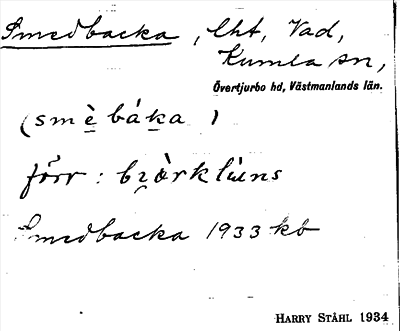 Smedbacka, lht, Vad,
Kumla sn,
Övertjurbo hd, Västmanlands län.
(smèbáka)
förr: bjòrklùns
Smedbacka 1933 kb
HARRY STÅHL 1934